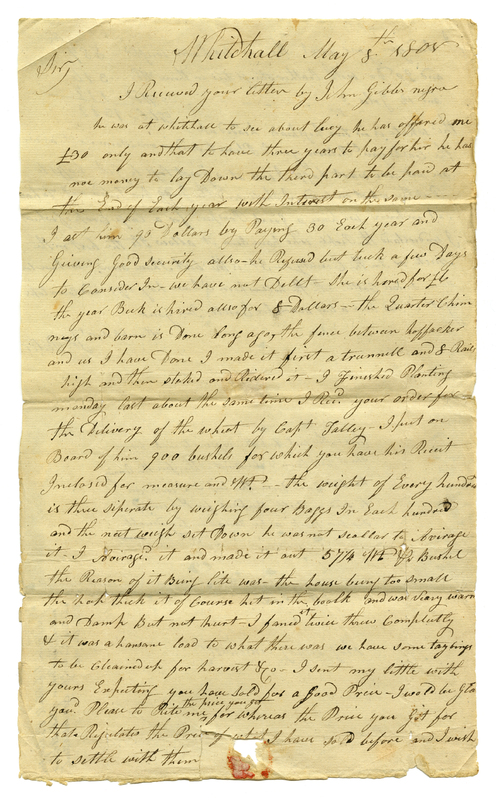 Whitehall May 8th 1801
Sir,
I Received your letter by John Gibbs negro
he was at whitehall to see about lucy he has offered me
£30 only and that to have three years to pay for hir he has
noe money to lay Down the third part to be paid at
the End of Each year with Interest on the same —
I ast him 90 Dollars by Paying 30 Each year and
Giving Good security allso — he Refused but tuck a few Days
to Consider In — we have not Delt — She is hored for £6
the year Beck is hired allso for 8 Dollars — the Quarter Chim
neys and barn is Done long ago, the fence between
and us I have Done I made it first a trunnell and 8 Rails
high and then staked and Ridered it — I Fineshed Planting
monday last about the same time I Reed your order for
the Delivery of the wheat by Capt Talley — I put on
Board of him 900 bushels for which you have his Receit
Inclosed for measure and Wt. — the weight of Every hundred
is three siperate by weighing four Baggs In Each hundred
and the neet weigh set Down he was not scollar to Avirage
it — I Avirage.d it and made it out 57¼ Wt. Bushel
the Reason of it Being lite was the house being too small
the thick it of Course het in the boolk and was very warm
and Damp But not hurt — I faned it twice threw Completly
& it was a hansome load to what there was we have some taylings
to be Cleained up for harvest &c — I sent my little with
yours Expecting you have sold for a Good Price — I would be Glad
you'd Please to Rite me the price you got for wheat as the Price you Got for
that Rigulates the Price of what I have sold before and I wish
to settle with them